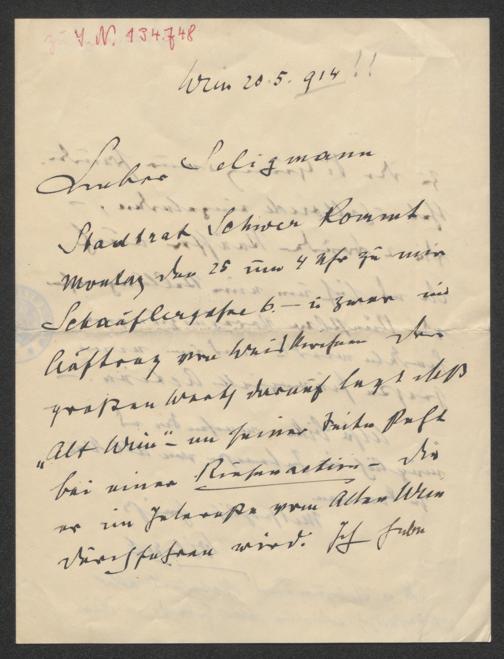 zu I. N. 134.748
Wien 20.5.914!!
Lieber Seligmann
Stadtrat Schwer kommt
Montag den 25 um 4 Uhr zu mir
Schauflergasse 6. – u zwar im
Auftrag von Weiskirchner der
großen Werth darauf legt daß
"Alt Wien" – an seiner Seite steht
bei einer Riesenaction – die
er im Interesse vom Alten Wien
durchführen wird. Ich habe